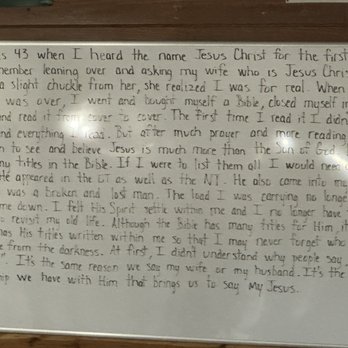 s 43 when I heard the name Jesus Christ for the first
member leaning over and asking my wife who is Jesus Chris
a slight chuckle from her, she realized I was for real. When
was over, I went and bought myself a Bible, closed myself in
nd read it from cover to cover. The first time I read it I didn
nd everything I read. But after much prayer and more reading
n to see and believe Jesus is much more than the Son of God
ny titles in the Bible. If I were to list them all I would need
He appeared in the OT as well as the NT. He also came into my
was a broken and lost man. The load I was carrying no longer
me down. I felt His Spirit settle within me and I no longer have
o revisit my old life. Although the Bible has many titles for Him, it
has His titles written within me so that I may never forget who
e from the darkness. At first, I didn't understand why people say
". It's the same reason we say my wife or my husband. It's the
hip we have with Him that brings us to say My Jesus.